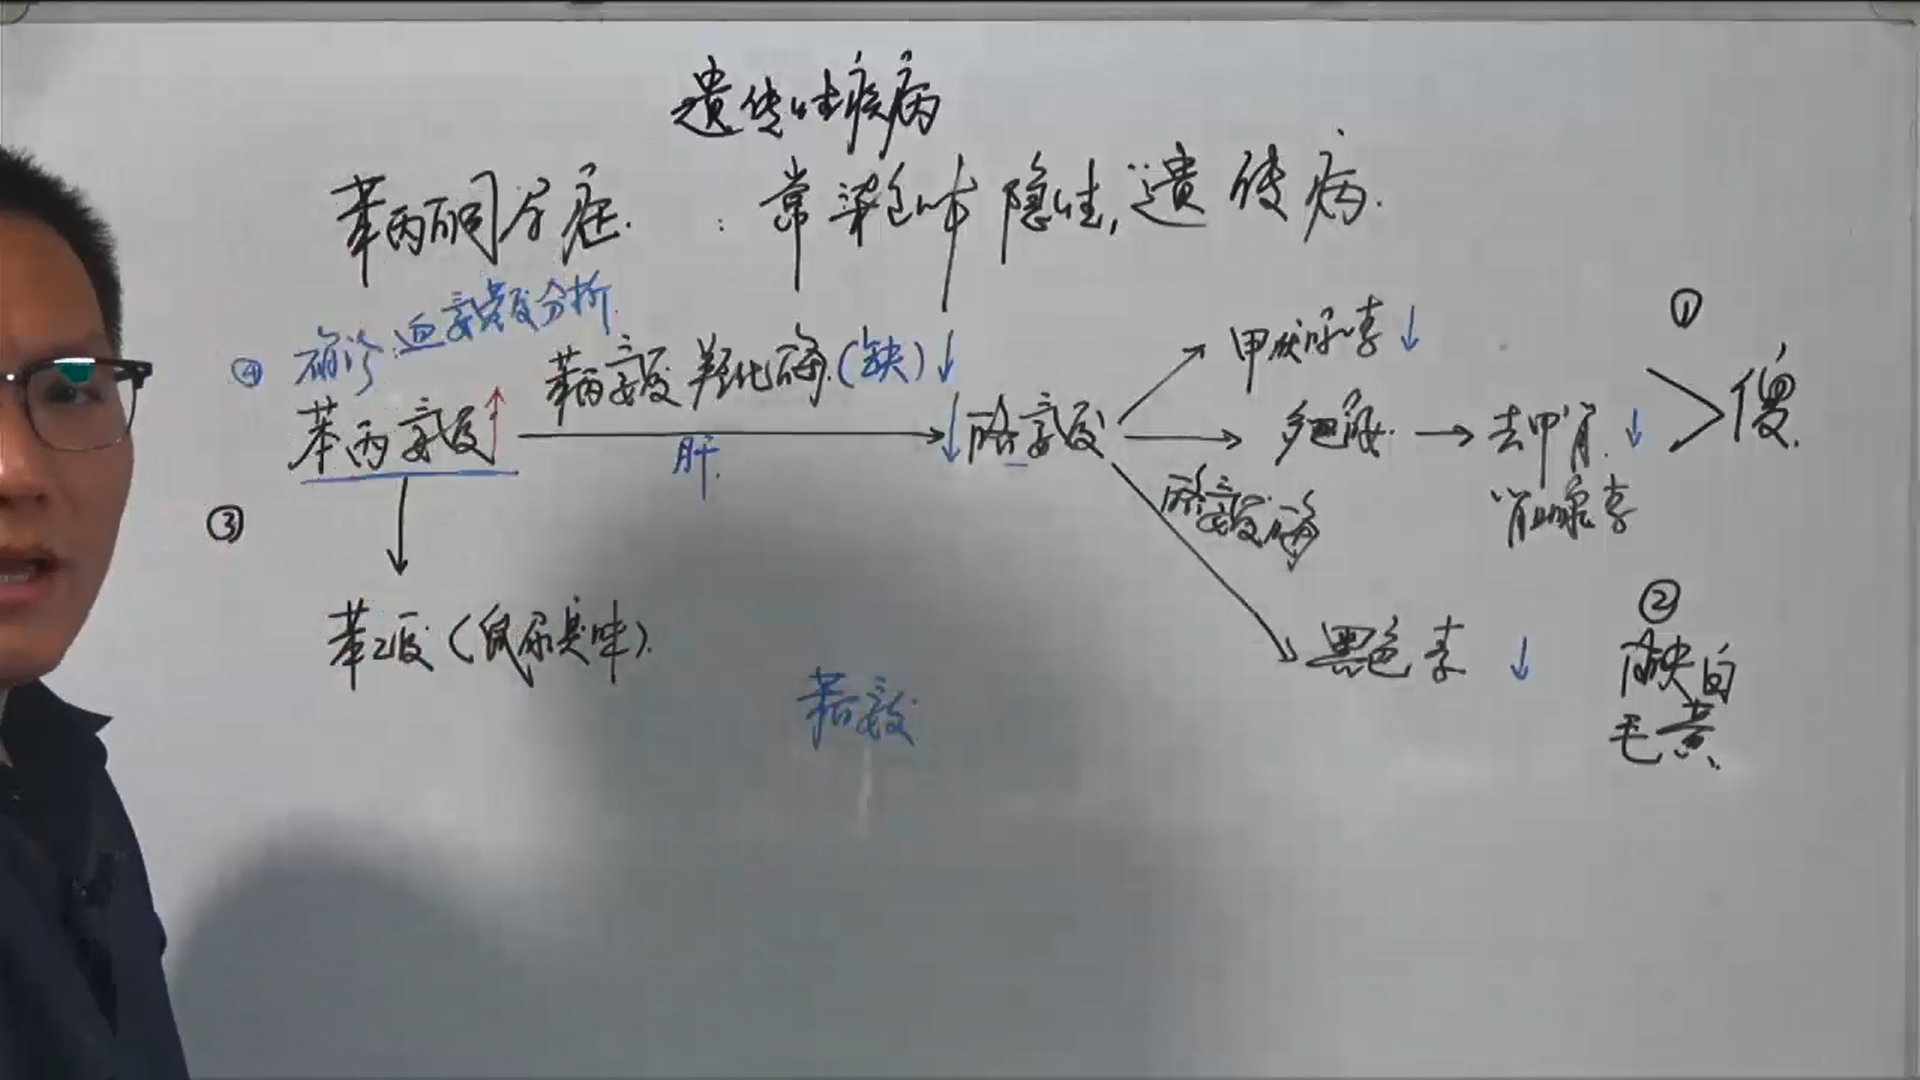 遗传性疾病
苯丙酮尿症：常染色体隐性遗传病.
④ 确诊:血氨基酸分析.
苯丙氨酸↑
苯丙氨酸羟化酶(缺)↓
肝.
↓酪氨酸
甲状腺素↓
多巴胺.→去甲肾.↓
肾上腺素
①
傻.
酪氨酸酶
③
苯乙酸(鼠尿臭味).
黑色素↓
②
肤白
毛黄.